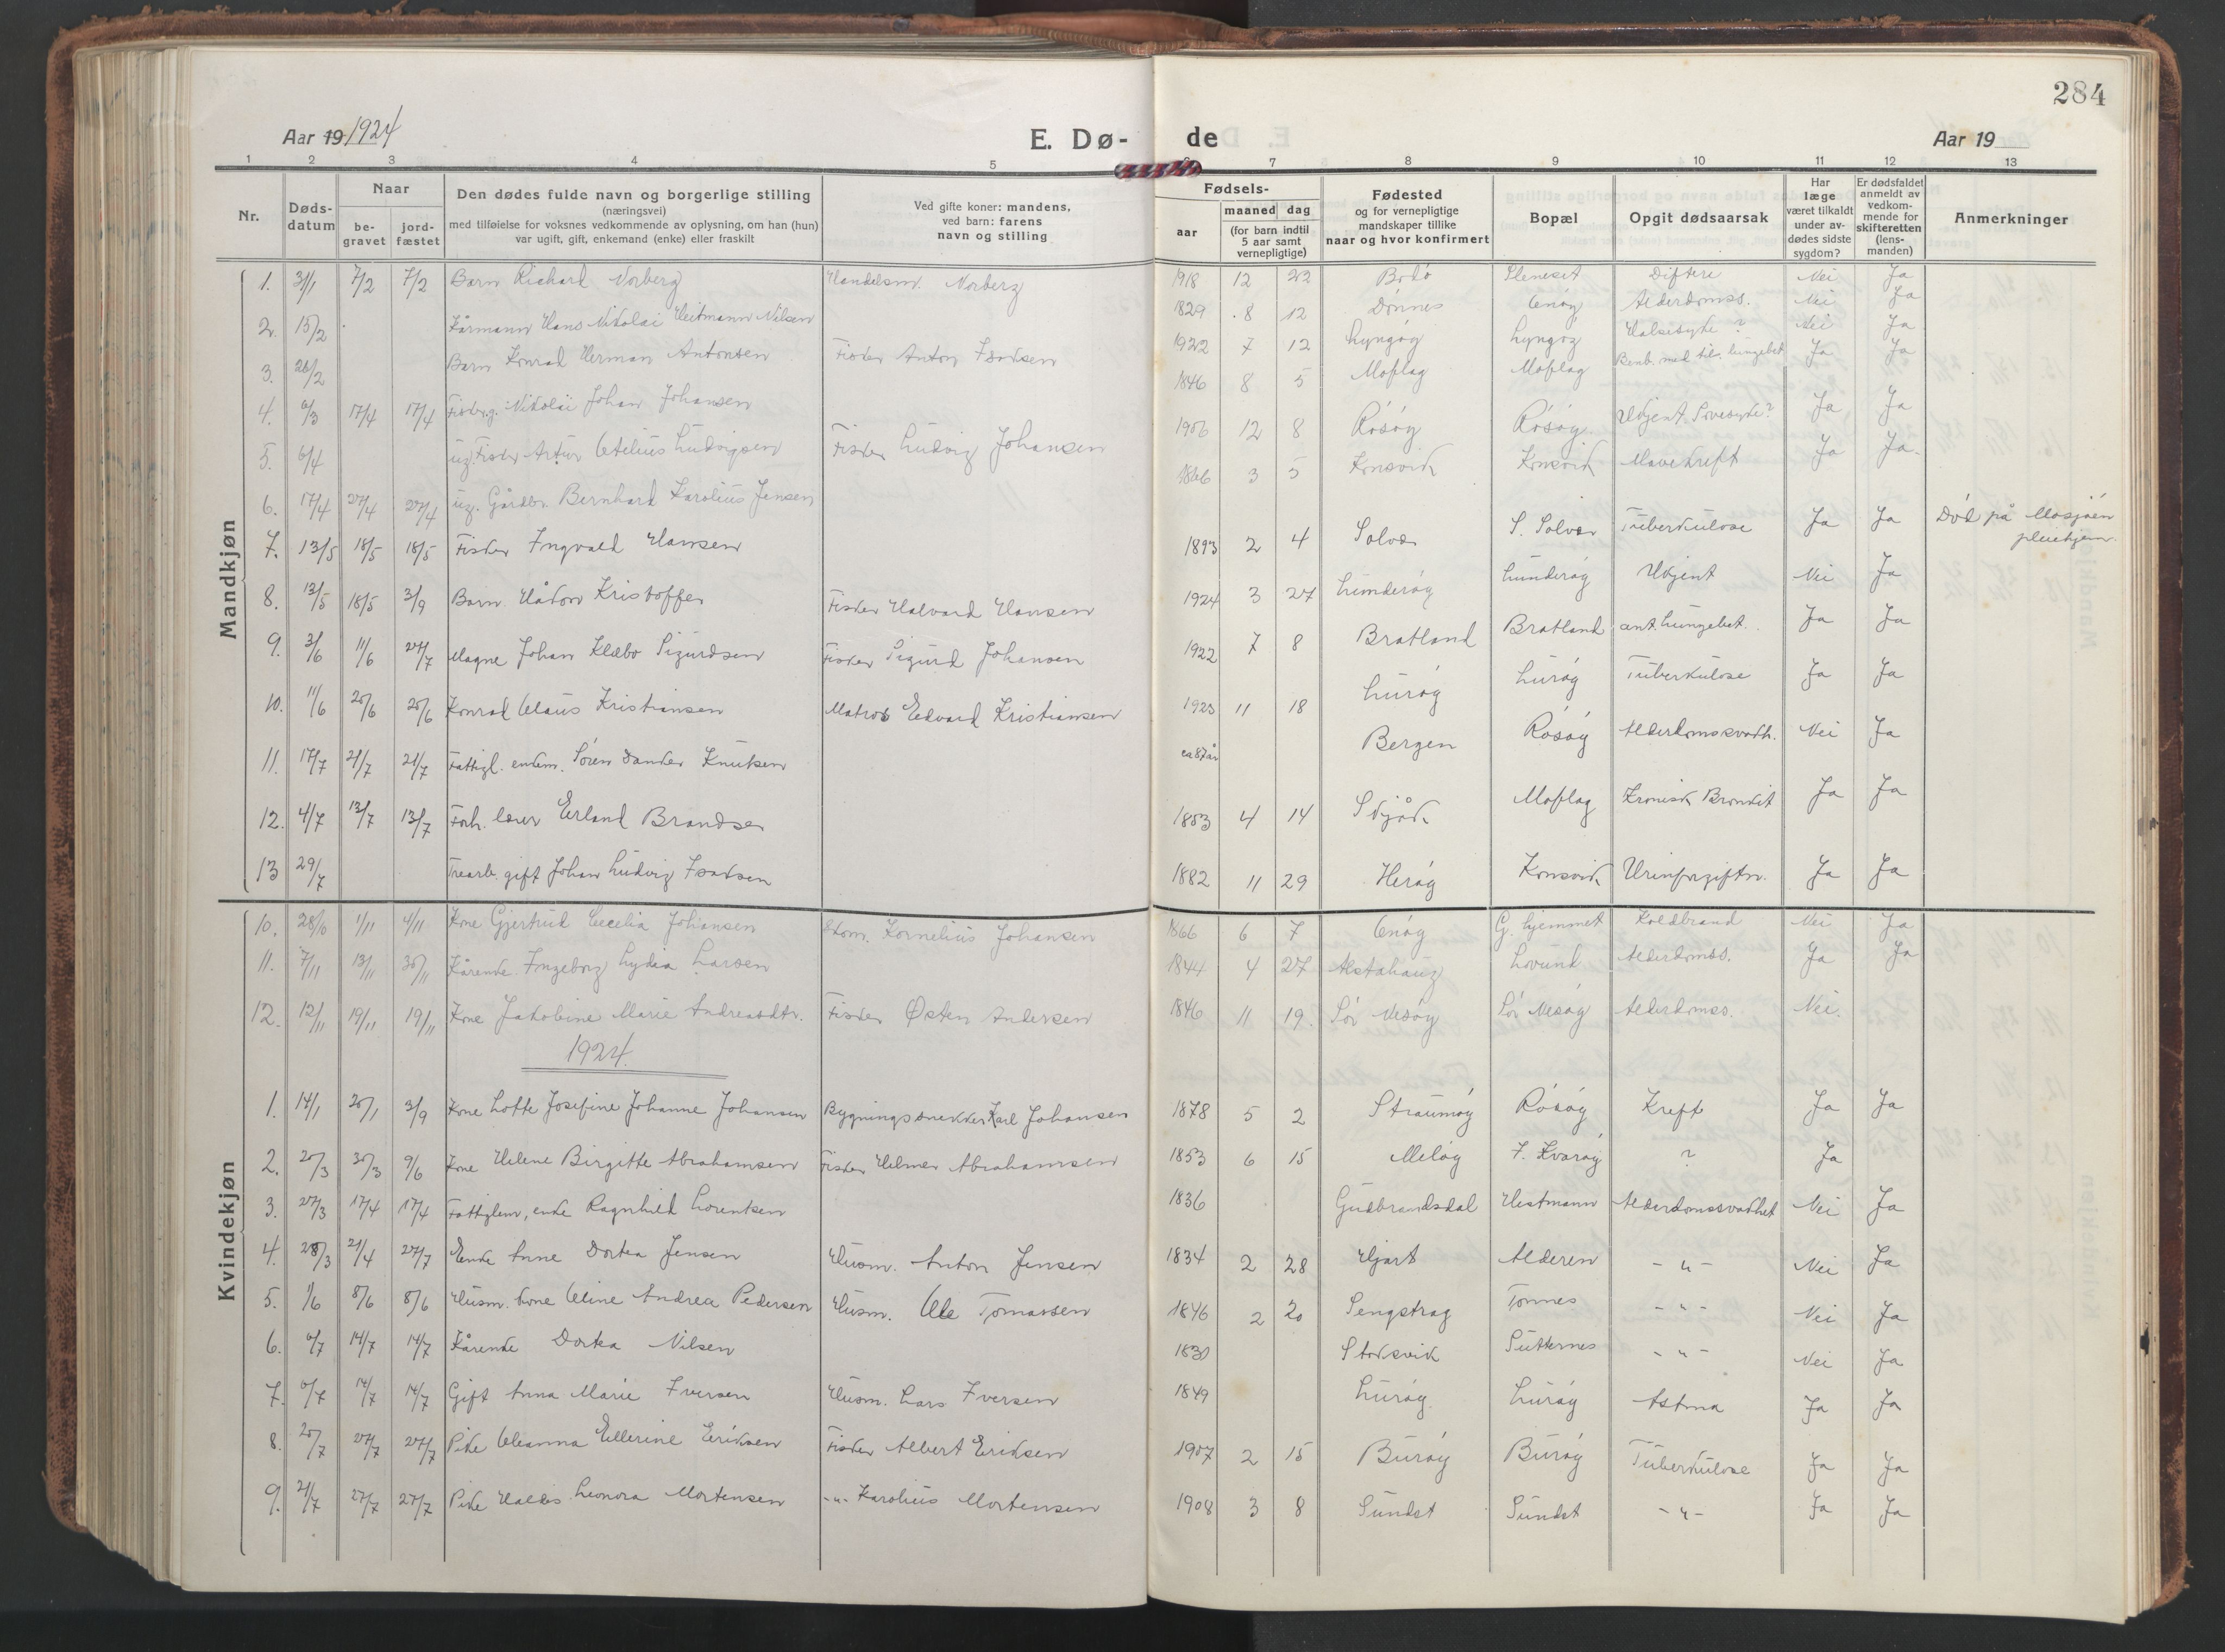 284
Aar 19 1924
E. Dø-
de
Aar 19
1 2 3 4 5 6 7 8 9 10 11 12 13
Nr.
Døds-
datum
Naar
be-
gravet
jord-
fæstet
Den dødes fulde navn og borgerlige stilling
(næringsvei)
med tilføielse for voksnes vedkommende av oplysning, om han (hun)
var ugift, gift, enkemand (enke) eller fraskilt
Ved gifte koner: mandens,
ved barn: farens
navn og stilling
Fødsels-
aar
maaned dag
(for barn indtil
5 aar samt
vernepligtige)
Fødested
og for vernepligtige
mandskaper tillike
naar og hvor konfirmert
Bopæl
Opgit dødsaarsak
Har
læge
været tilkaldt
under av-
dødes sidste
sygdom?
Er dødsfaldet
anmeldt av
vedkom-
mende for
skifteretten
(lens-
manden)
Anmerkninger
Mandkjøn
1. 31/1 7/2 7/2 Barn Richard Norberg Handelsm. Norberg 1918 12 23 Bodø Sleneset Difteri Nei Ja
2. 15/2 Kårmann Hans Nikolai Heitmann Nilsen 1829 8 12 Dønnes Enøy Alderdomss. Nei Ja
3. 26/2 Barn Konrad Herman Antonsen Fisker Anton Isaksen 1922 7 12 Lyngøy Lyngøy Halsesyke ? Nei Ja
4. 6/3 17/4 17/4 Fisker g. Nikolai Johan Johansen 1846 8 5 Moflag Moflag Benb. med til. lungebet Ja Ja
5. 6/4 ug. Fisker Artur Otelius Ludvigsen Fisker Ludvig Johansen 1906 12 8 Rósøy Rósøy Ukjent Sovesyke? Ja Ja
6. 17/4 27/4 27/4 ug. Gårdbr. Bernhard Karolius Jensen 1866 3 5 Konsvik Konsvik Mavekreft Ja Ja
7. 13/5 18/5 18/5 Fisker Ingvald Hansen 1893 2 4 Solvær S. Solvær Tuberkulose Ja Ja Død på Mosjøen
pleiehjem.
8. 13/5 18/5 3/9 Barn Håkon Kristoffer Fisker Halvard Hansen 1924 3 27 Lunderøy Lunderøy Ukjent Nei Ja
9. 3/6 11/6 27/7 Magne Johan Klæbo Sigurdsen Fisker Sigurd Johansen 1922 7 8 Bratland Bratland ant. lungebet. Ja Ja
10. 11/6 20/6 20/6 Konrad Claus Kristiansen Matros Edvard Kristiansen 1923 11 18 Lurøy Lurøy Tuberkulose Ja Ja
11. 17/7 21/7 21/7 Fattigl. enkem. Søren Sander Knutsen ca 87 år Bergen Rósøy Alderdomssvakh. Nei Ja
12. 4/7 13/7 13/7 Forh. lærer Erland Brandser 1853 4 14 Skjåk Moflag Kronisk Bronkit Ja Ja
13 29/7 Trearb. gift Johan Ludvig Isaksen 1882 11 29 Herøy Konsvik Urinforgiftn. Ja Ja
Kvindekjøn
10. 28/10 1/11 4/11 Kone Gjertrud Cecelia Johansen Kornelius Johansen 1866 6 7 Enøy G. hjemmet Koldbrand Nei Ja
11. 7/11 13/11 30/11 Kårenke Ingeborg Lydia Larsen 1844 4 27 Alstahaug Lovund Alderdomss. Ja Ja
12. 12/11 19/11 19/11 Kone Jakobine Marie Andreasdtr. Fisker Østen Andersen 1846 11 19 Sør Nesøy Sør Nesøy Alderdomss. Nei.
1924
1. 14/1 20/1 3/9 Kone Lotte Josefine Johanne Johansen Bygningssnekker Karl Johansen 1878 5 2 Straumøy Rósøy Kreft Ja Ja
2. 20/3 30/3 9/6 Kone Helene Birgitte Abrahamsen Fisker Helmer Abrahamsen 1853 6 15 Meløy I. Kvarøy ? Ja
3. 27/3 17/4 17/4 Fattiglem, enke Ragnhild Lorentsen 1836 Gudbrandsdal Hestmann Alderdomssvakhet Nei Ja
4. 28/3 21/4 27/7 Enke Anne Dortea Jensen Husm. Anton Jensen 1834 2 28 Hjart Alderen - " - Nei Ja
5. 1/6 8/6 8/6 Husm. kone Oline Andrea Pedersen Husm. Ole Tomassen 1846 2 20 Sengskrog Tonnes - " - Nei Ja
6. 6/7 14/7 14/7 Kårenke Dortea Nilsen 1830 Stoksvik Sutternes - " - Nei Ja
7. 6/7 14/7 14/7 Gift Anna Marie Iversen Husm. Lars Iversen 1849 Lurøy Lurøy Astma Ja Ja
8. 20/7 27/7 27/7 Pike Oleanna Ellerine Eriksen Fisker Albert Eriksen 1907 2 15 Burøy Burøy Tuberkulose Ja Ja
9. 21/7 27/7 27/7 Pike Haldis Leonora Mortensen - " - Karolius Mortensen 1908 3 8 Sundst Sundst - " - Ja Ja